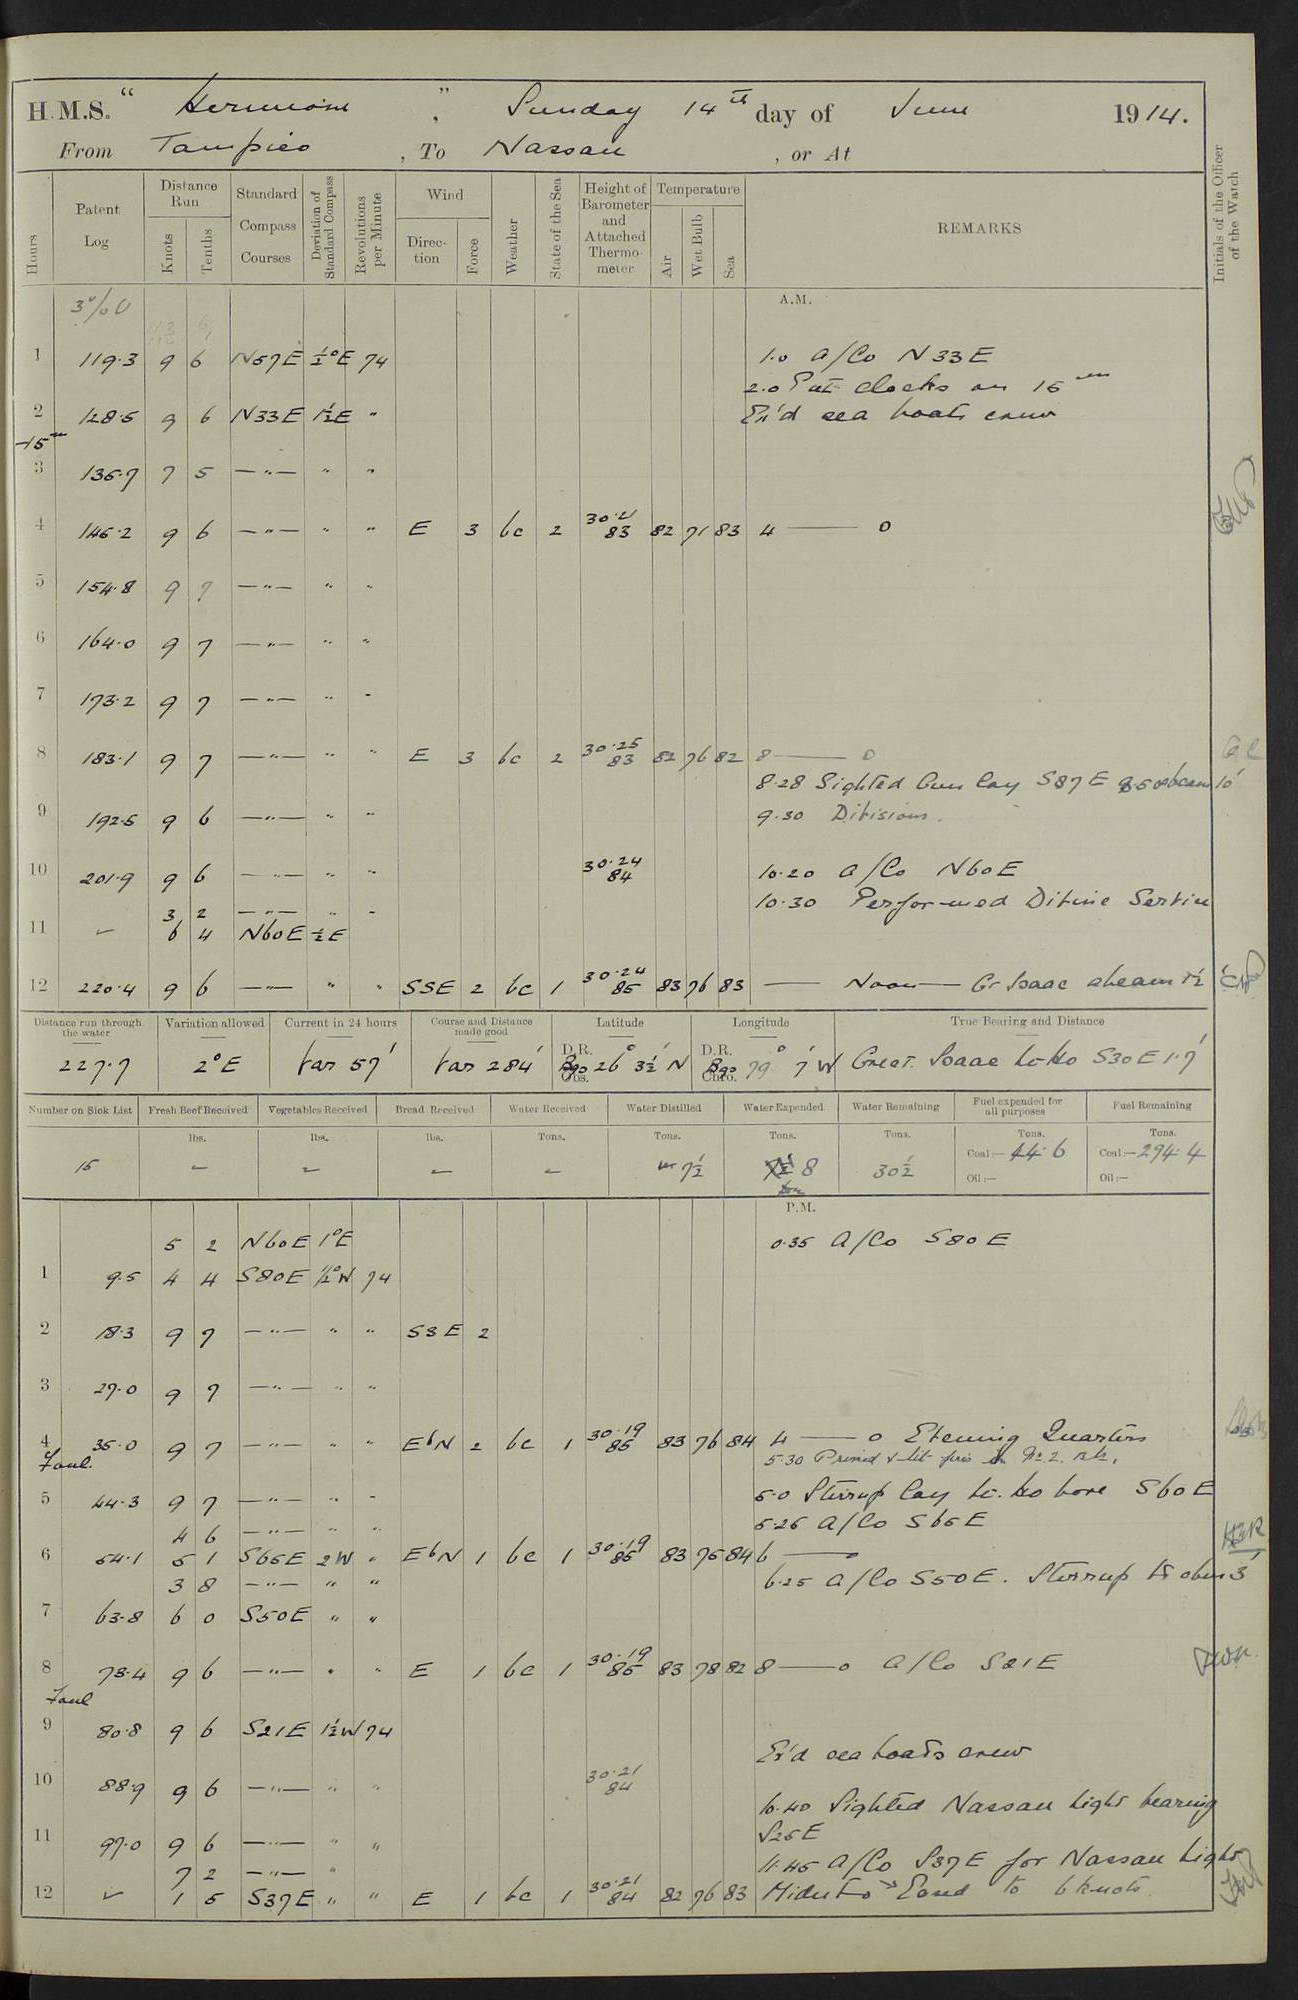 H.M.S. " Hermione ", Sunday 14th day of June 1914.
From Tampico , To Nassau , or At
Hours
Patent Log
Distance Run
Knots
Tenths
Standard Compass Courses
Deviation of Standard Compass
Revolutions per Minute
Wind
Direction
Force
Weather
State of the Sea
Height of Barometer and Attached Thermometer
Temperature
Air
Wet Bulb
Sea
REMARKS
Initials of the Officer of the Watch
3% U
A.M.
1 119.3 9 6 N57E ½°E 74 1.0 A/Co N33E
2.0 Put clocks on 15 m
2 128.5 9 6 N33E 1½E " Ex'd sea boats crew
-15 m
3 135.7 7 5 —"— " "
4 145.2 9 6 —"— " " E 3 bc 2 30.21 83 82 71 83 4 —— 0
5 154.8 9 7 —"— " "
6 164.0 9 7 —"— " "
7 173.2 9 7 —"— " "
8 183.1 9 7 —"— " " E 3 bc 2 30.25 83 82 76 82 8 —— 0
8.28 Sighted Gun Cay S87E 9.50 abeam 10'
9 192.5 9 6 —"— " " 9.30 Divisions.
10 201.9 9 6 —"— " " 30.24 84 10.20 A/Co N60E
3 2 —"— " " 10.30 Performed Divine Service
11 ✓ 6 4 N60E ½E
12 220.4 9 6 —"— " " SSE 2 bc 1 30.24 85 83 76 83 —— Noon — Gt Isaac abeam 1½'
Distance run through the water
Variation allowed
Current in 24 hours
Course and Distance made good
Latitude
Longitude
True Bearing and Distance
227.7 2°E Var 57' Var 284' D.R. Obs. 26° 3½' N D.R. Chro. 79° 7' W Great Isaac Lt Ho S30E 1.7'
Number on Sick List
Fresh Beef Received
Vegetables Received
Bread Received
Water Received
Water Distilled
Water Expended
Water Remaining
Fuel expended for all purposes
Fuel Remaining
lbs. lbs. lbs. Tons. Tons. Tons. Tons. Tons. Tons.
15 – – – – 7½ 8 30½ Coal:— 44.6 Coal:— 294.4
Oil:— Oil:—
P.M.
5 2 N60E 1°E 0.35 A/Co S80E
1 9.5 4 4 S80E ½°W 74
2 18.3 9 7 —"— " " SSE 2
3 27.0 9 7 —"— " "
4 35.0 9 7 —"— " " EbN 2 bc 1 30.19 85 83 76 84 4 —— 0 Evening Quarters
Foul. 5.30 Primed & lit fires in No. 2.
5 44.3 9 7 —"— " " 5.0 Stirrup Cay Lt. Ho bore S60E
4 6 —"— " " 5.25 A/Co S65E
6 54.1 5 1 S65E 2W " EbN 1 bc 1 30.19 85 83 75 84 6 —— 0
3 8 —"— " " 6.25 A/Co S50E. Stirrup Lt abm 3'
7 63.8 6 0 S50E " "
8 73.4 9 6 —"— " " E 1 bc 1 30.19 85 83 78 82 8 —— 0 A/Co S21E
Foul
9 80.8 9 6 S21E 1½W 74
Ex'd sea boats crew
10 88.9 9 6 —"— " " 30.21 84
10.40 Sighted Nassau light bearing
11 97.0 9 6 —"— " " S25E
7 2 —"— " 11.45 A/Co S37E for Nassau Light
12 ✓ 1 5 S37E " " E 1 bc 1 30.21 84 82 76 83 Midnt 0 Eased to 6 knots